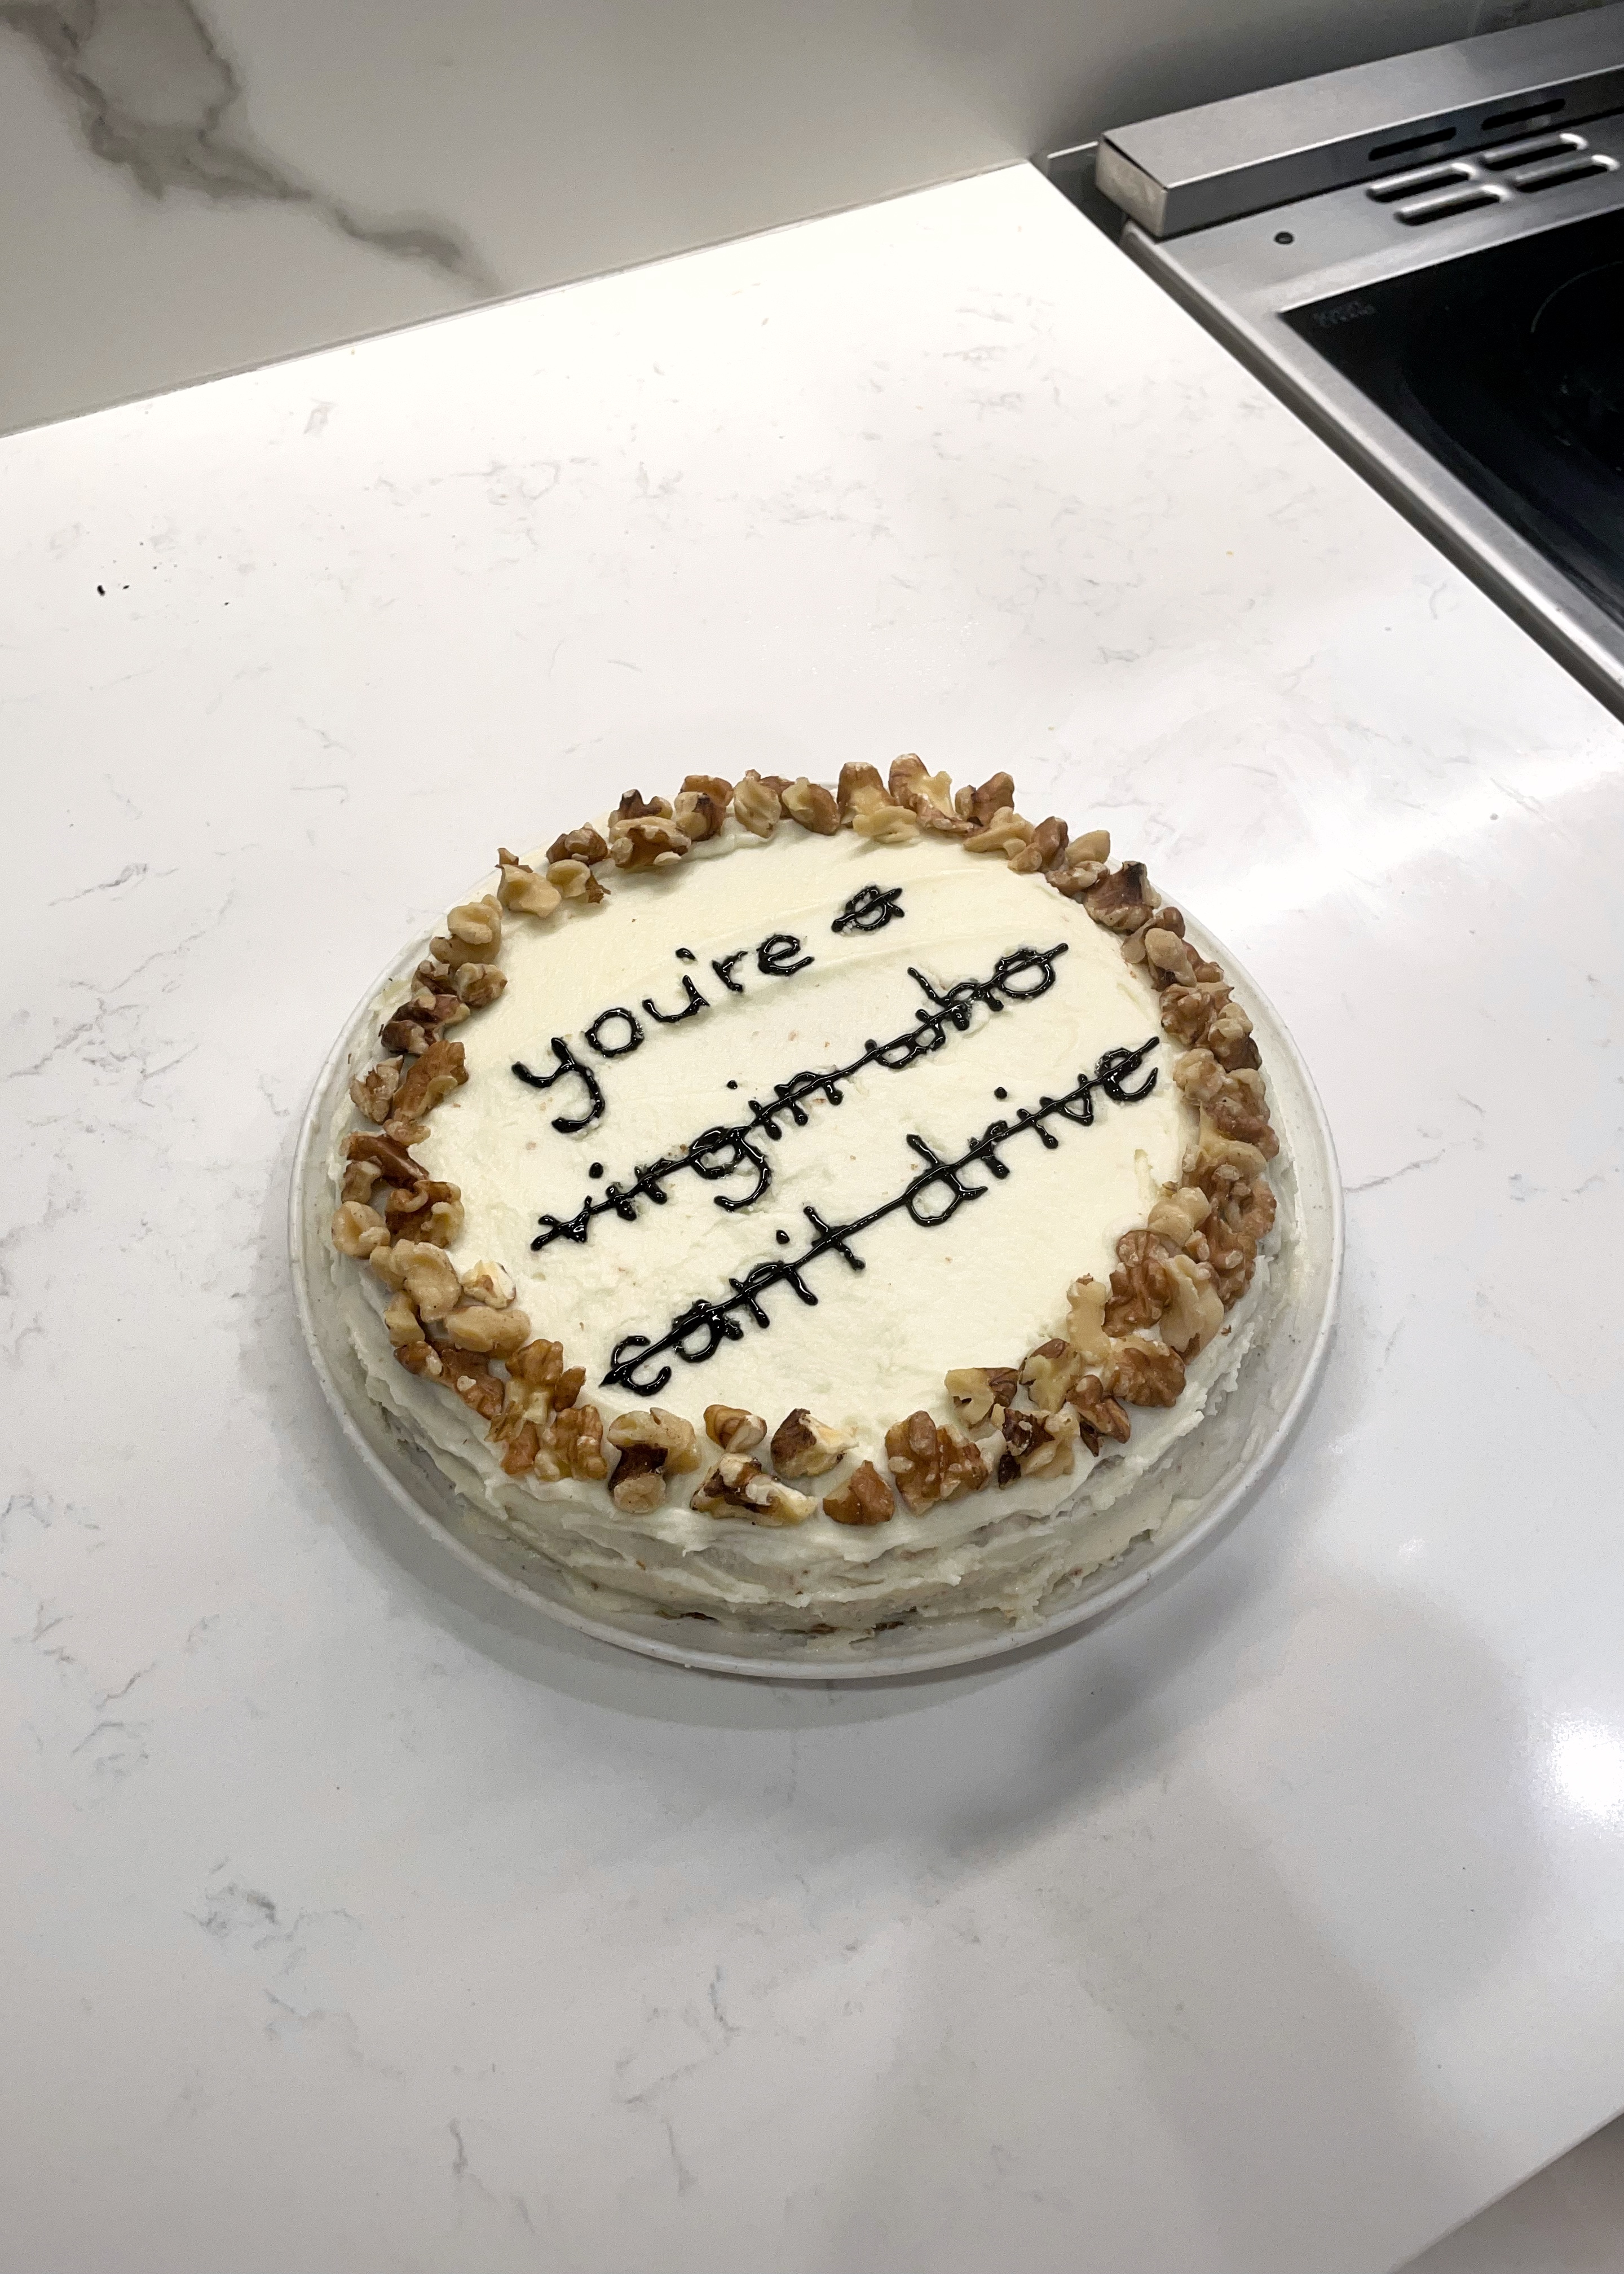 you're a
virgin who
can't drive